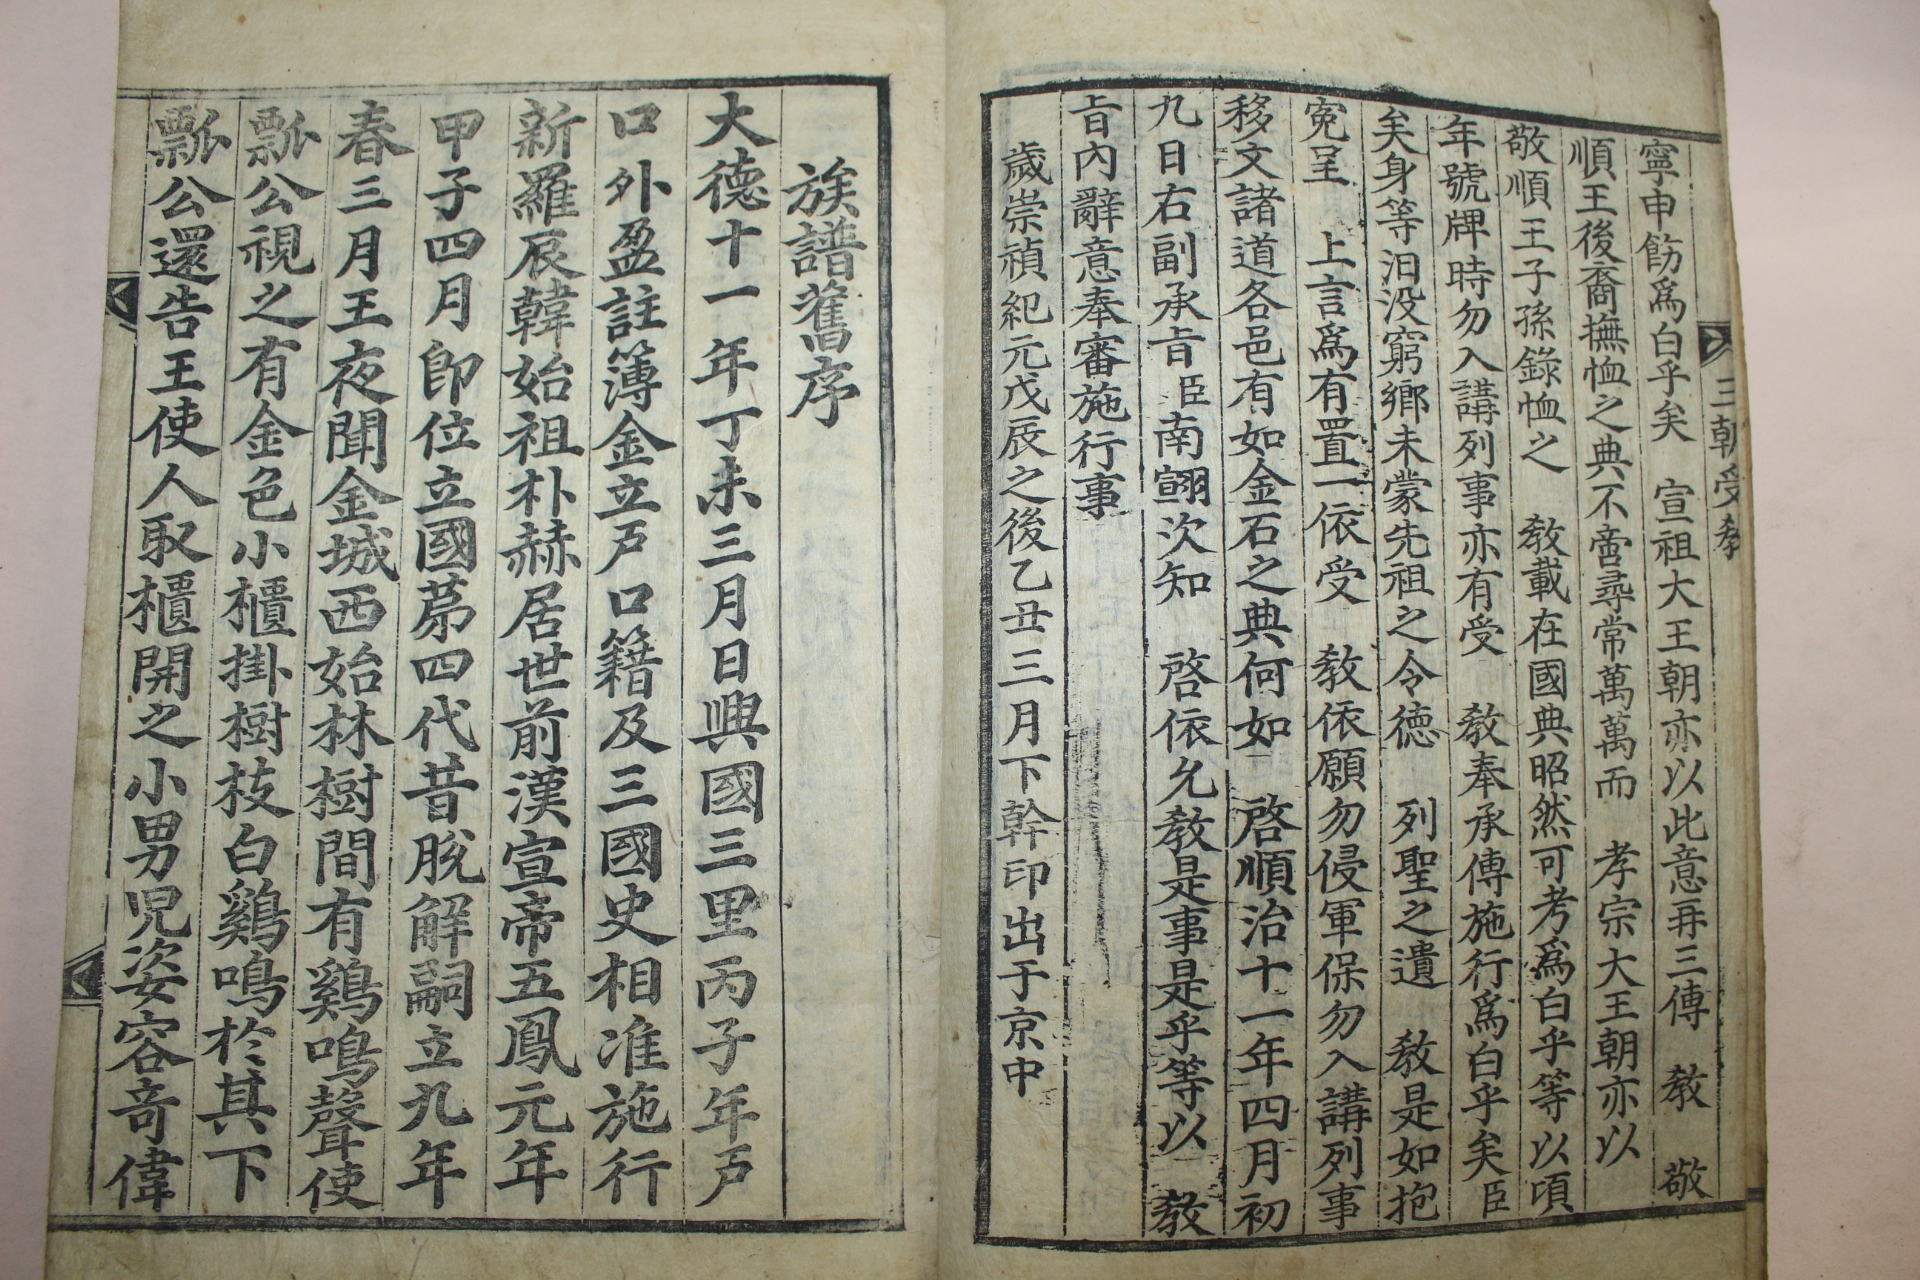 三朝受教
寧申飭爲白乎矣 宣祖大王朝亦以此意再三傳 教 敬
順王後裔撫恤之典不啻尋常萬萬而 孝宗大王朝亦以
敬順王子孫錄恤之 教載在國典昭然可考爲白乎等以頃
年號牌時勿入講列事亦有受 教奉承傳施行爲白乎矣臣
矣身等汨没窮鄉未蒙先祖之令德 列聖之遺 教是如抱
寃呈 上言爲有置一依受 教依願勿侵軍保勿入講列事
移文諸道各邑有如金石之典何如 啓順治十一年四月初
九日右副承旨臣南翧次知 啓依允教是事是乎等以 教
旨內辭意奉審施行事
歲崇禎紀元戊辰之後乙丑三月下幹印出于京中
族譜舊序
大德十一年丁未三月日興國三里丙子年戸
口外盈註簿金立戸口籍及三國史相准施行
新羅辰韓始祖朴赫居世前漢宣帝五鳳元年
甲子四月卽位立國苐四代昔脫解嗣立九年
春三月王夜聞金城西始林樹間有鷄鳴聲使
瓢公視之有金色小櫃掛樹枝白鷄鳴於其下
瓢公還告王使人取櫃開之小男児姿容竒偉